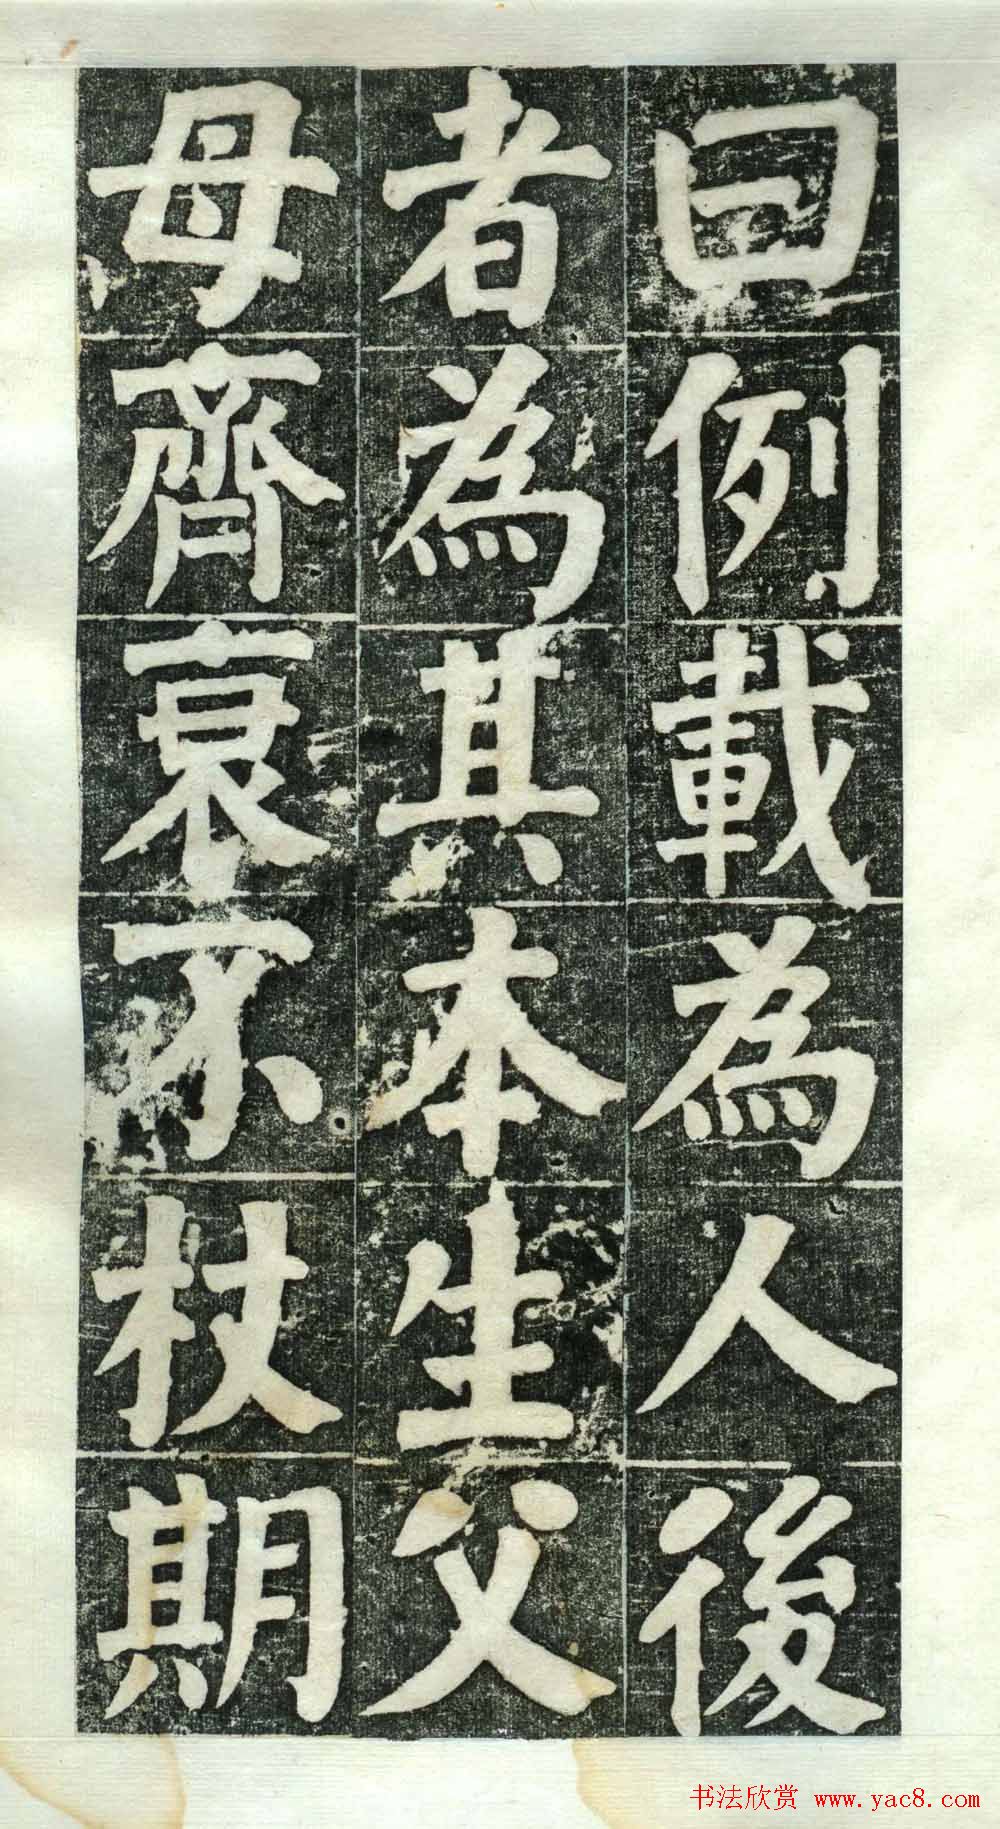 曰例載為人後
者為其本生父
母齊衰不杖期
书法欣赏 www.yac8.com